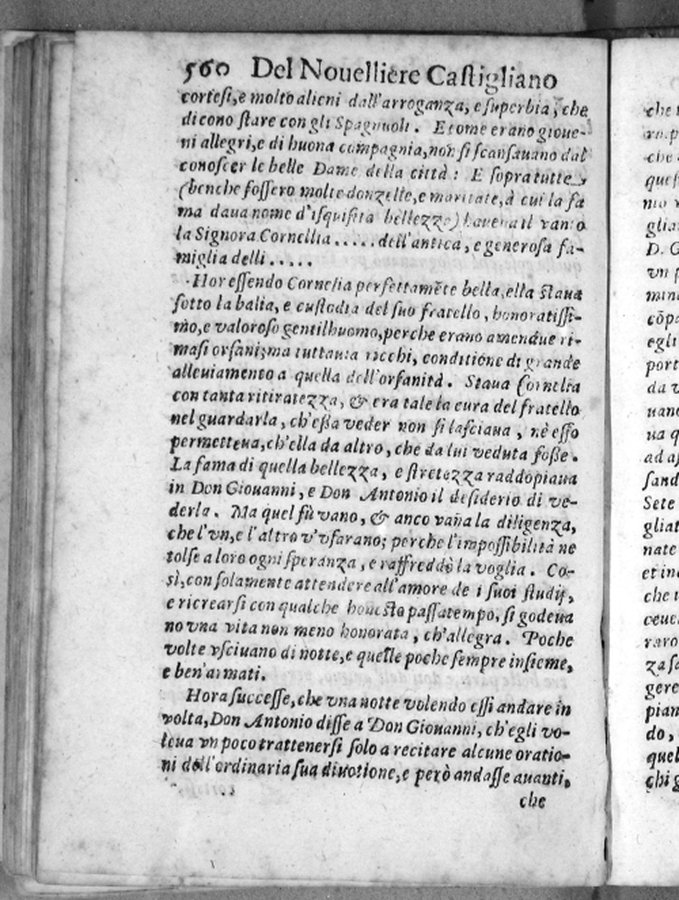 560 Del Nouelliere Castigliano
cortesi, e molto alieni dall'arroganza, e superbia, che
dicono stare con gli Spagnuoli. Et come erano gioue-
ni allegri, e di buona compagnia, non si scansauano dal
conoscer le belle Dame della città: E sopra tutte,
(benche fossero molte donzelle, e maritate, à cui la fa
ma daua nome d'isquisita bellezza) haueua il vanto
la Signora Cornellia..... dell'antica, e generosa fa-
miglia delli.....
Hor essendo Cornelia perfettamēte bella, ella staua
sotto la balia, e custodia del suo fratello, honoratissi-
mo, e valoroso gentilhuomo, perche erano amendue ri-
masi orfani, ma tuttauia ricchi, conditione di grande
alleuiamento a quella dell'orfanità. Staua Cornelia
con tanta ritiratezza, & era tale la cura del fratello
nel guardarla, ch'essa veder non si lasciaua, nè esso
permetteua, ch'ella da altro, che da lui veduta fosse.
La fama di quella bellezza, e stretezza raddopiaua
in Don Giouanni, e Don Antonio il desiderio di ve-
derla. Ma quel fù vano, & anco vana la diligenza,
che l'vn, e l'altro v'vsarano; perche l'impossibilità ne
tolse a loro ogni speranza, e raffreddò la voglia. Co-
sì, con solamente attendere all'amore de i suoi studij,
e ricrearsi con qualche honesto passatempo, si godeua
no vna vita non meno honorata, ch'allegra. Poche
volte vsciuano di notte, e quelle poche sempre insieme,
e ben'armati.
Hora successe, che vna notte volendo essi andare in
volta, Don Antonio disse a Don Giouanni, ch'egli vo-
leua vn poco trattenersi solo a recitare alcune oratio-
ni dell'ordinaria sua diuotione, e però andasse auanti,
che